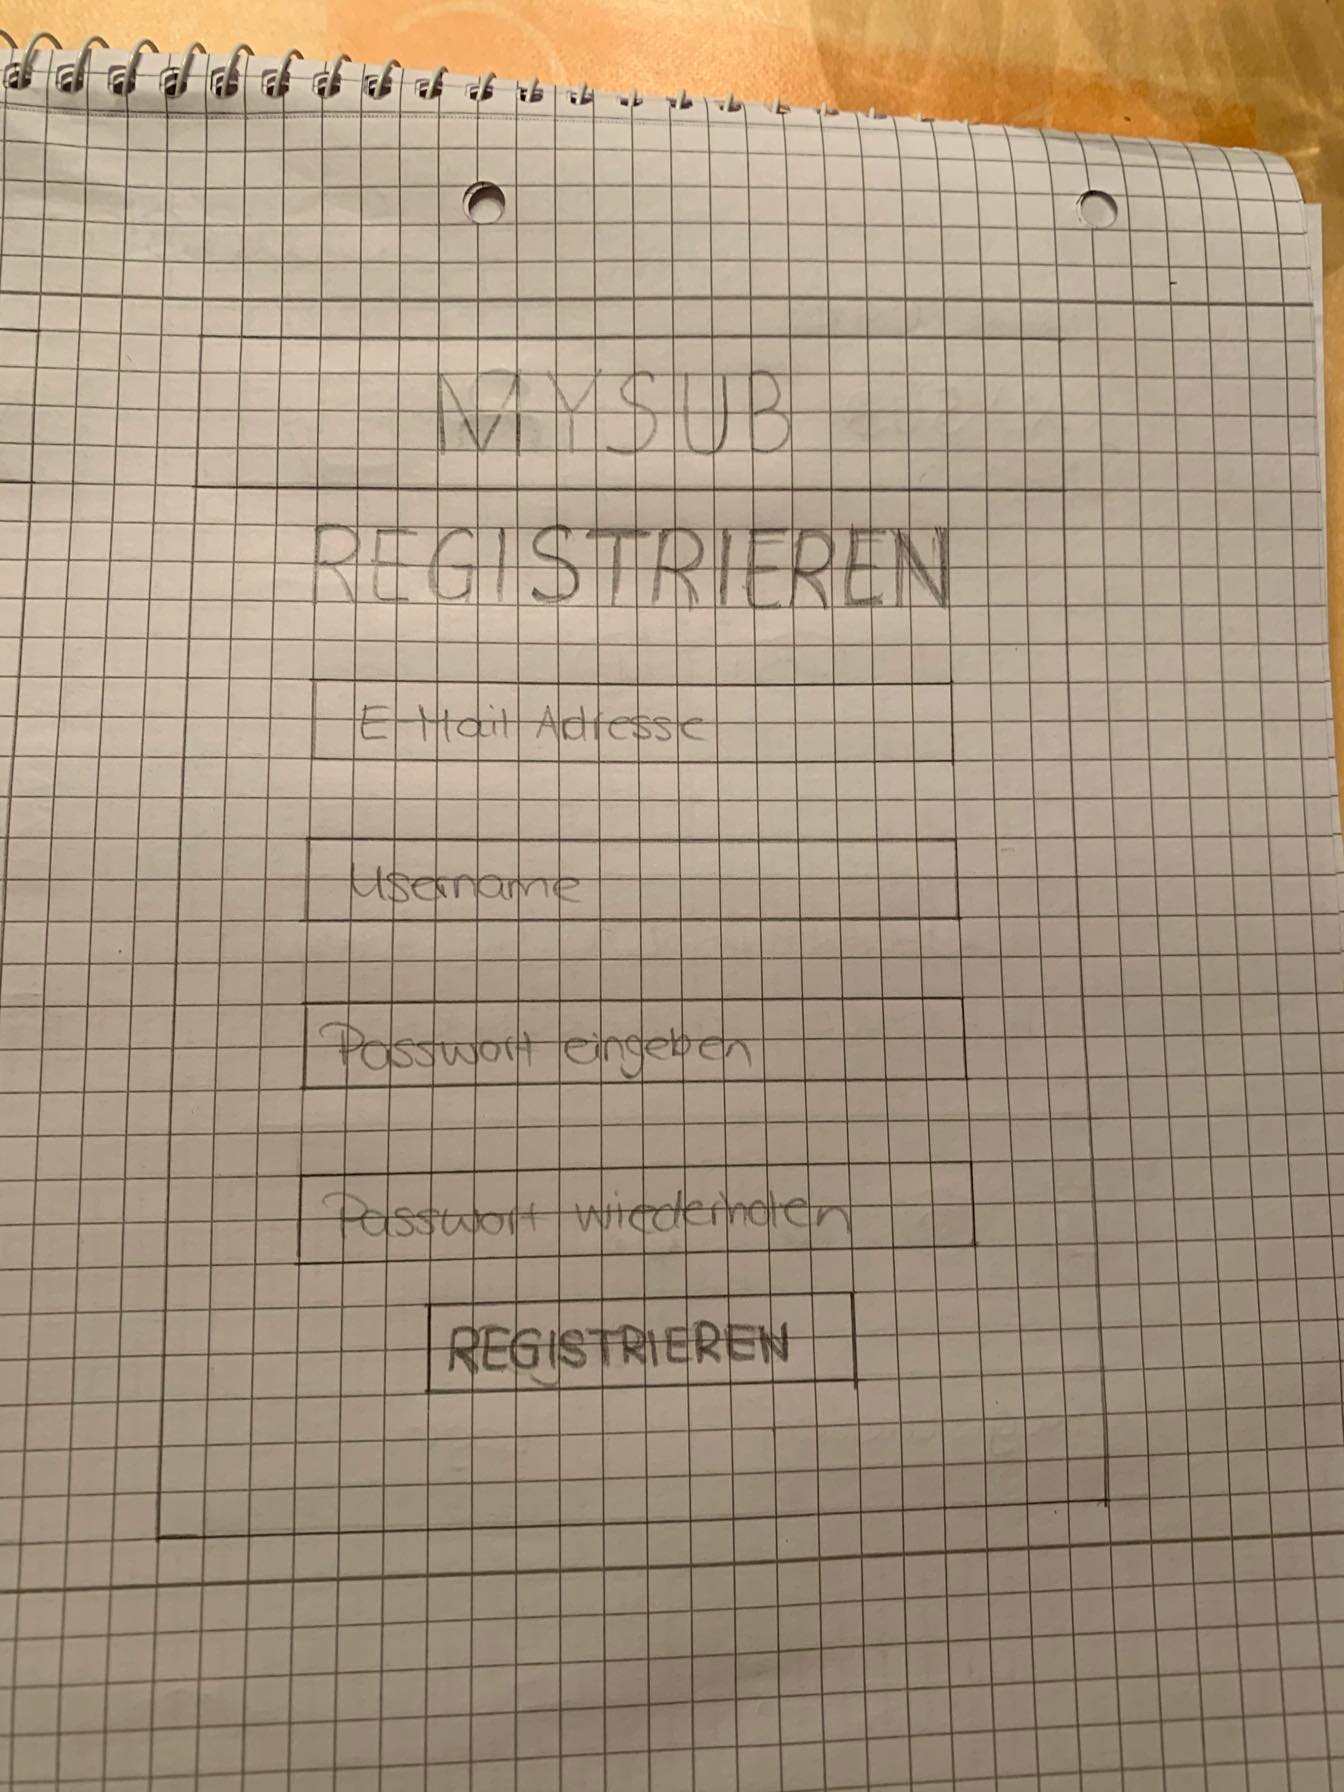 MYSUB
REGISTRIEREN
E-Mail Adresse
Username
Passwort eingeben
Passwort wiederholen
REGISTRIEREN